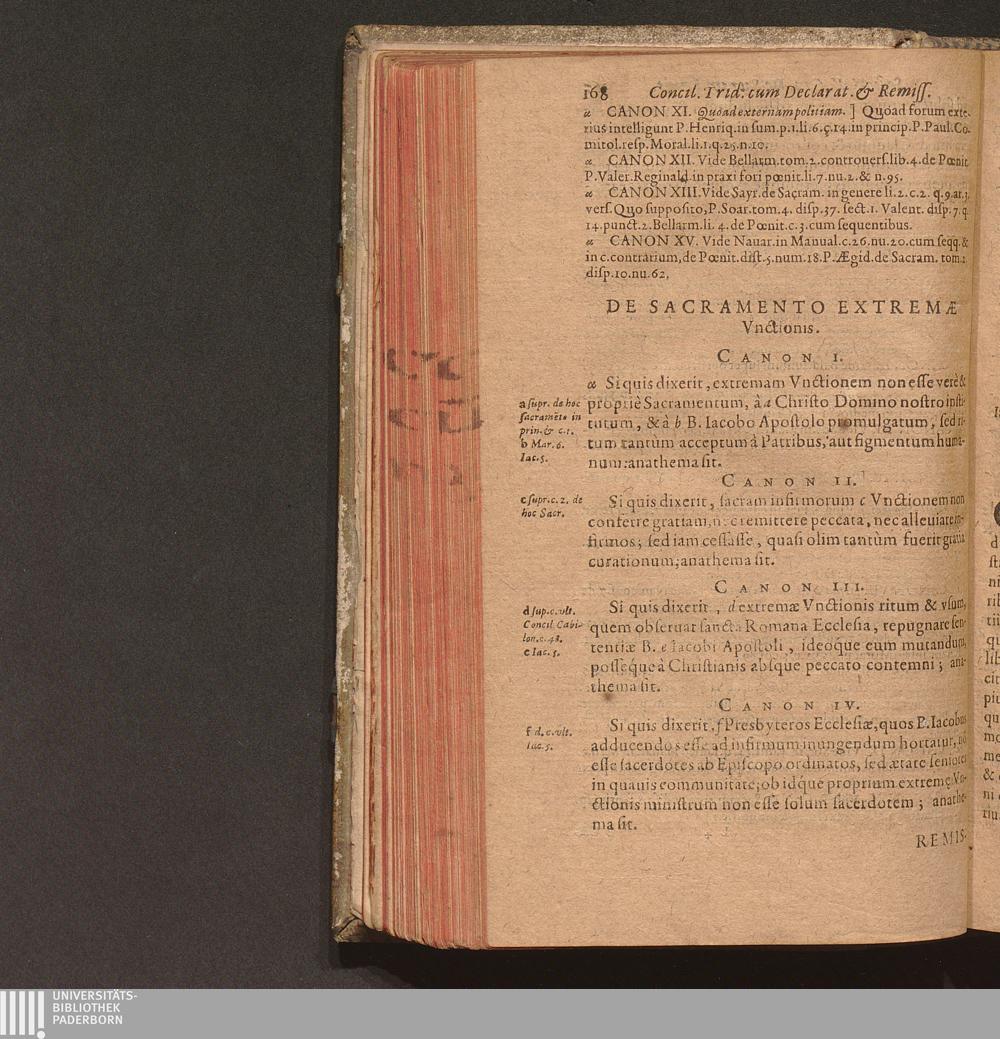 168 Concil. Trid. cum Declarat. & Remiss.
α CANON XI. Quoad externam politiam. ] Quoad forum exte-
rius intelligunt P. Henriq. in sum. p. 1. li. 6. ç. 14. in princip. P. Paul. Co-
mitol. resp. Moral. li. 1. q. 25. n. 10.
α CANON XII. Vide Bellarm. tom. 2. controuers. lib. 4. de Pœnit.
P. Valer. Reginald. in praxi fori pœnit. li. 7. nu. 2. & n. 95.
α CANON XIII. Vide Sayr. de Sacram. in genere li. 2. c. 2. q. 9. ar. 3.
vers. Quo supposito, P. Soar. tom. 4. disp. 37. sect. 1. Valent. disp. 7. q.
14. punct. 2. Bellarm. li. 4. de Pœnit. c. 3. cum sequentibus.
α CANON XV. Vide Nauar. in Manual. c. 26. nu. 20. cum seqq. &
in c. contrarium, de Pœnit. dist. 5. num. 18. P. Ægid. de Sacram. tom. 2.
disp. 10. nu. 62.
DE SACRAMENTO EXTREMÆ
Vnctionis.
CANON I.
α Si quis dixerit, extremam Vnctionem non esse verè &
propriè Sacramentum, à a Christo Domino nostro insti-
tutum, & à b B. Iacobo Apostolo promulgatum, sed ri-
tum tantùm acceptum à Patribus, aut figmentum huma-
num: anathema sit.
a supr. de hoc
sacramēto in
prin. & c. 1.
b Mar. 6.
Iac. 5.
CANON II.
Si quis dixerit, sacram infirmorum c Vnctionem non
conferre gratiam, nec remittere peccata, nec alleuiare in-
firmos; sed iam cessasse, quasi olim tantùm fuerit gratia
curationum; anathema sit.
c supr. c. 2. de
hoc Sacr.
CANON III.
Si quis dixerit, d extremæ Vnctionis ritum & vsum,
quem obseruat sancta Romana Ecclesia, repugnare sen-
tentiæ B. e Iacobi Apostoli, ideoque eum mutandum,
posseque à Christianis absque peccato contemni; ana-
thema sit.
d sup. c. vlt.
Concil. Cabi-
lon. c. 48.
e Iac. 5.
CANON IV.
Si quis dixerit, f Presbyteros Ecclesiæ, quos P. Iacobus
adducendos esse ad infirmum inungendum hortatur, nō
esse sacerdotes ab Episcopo ordinatos, sed ætate seniores
in quauis communitate; ob idque proprium extremę Vn-
ctionis ministrum non esse solum sacerdotem; anathe-
ma sit.
f d. c. vlt.
Iac. 5.
REMIS-
UNIVERSITÄTS-
BIBLIOTHEK
PADERBORN